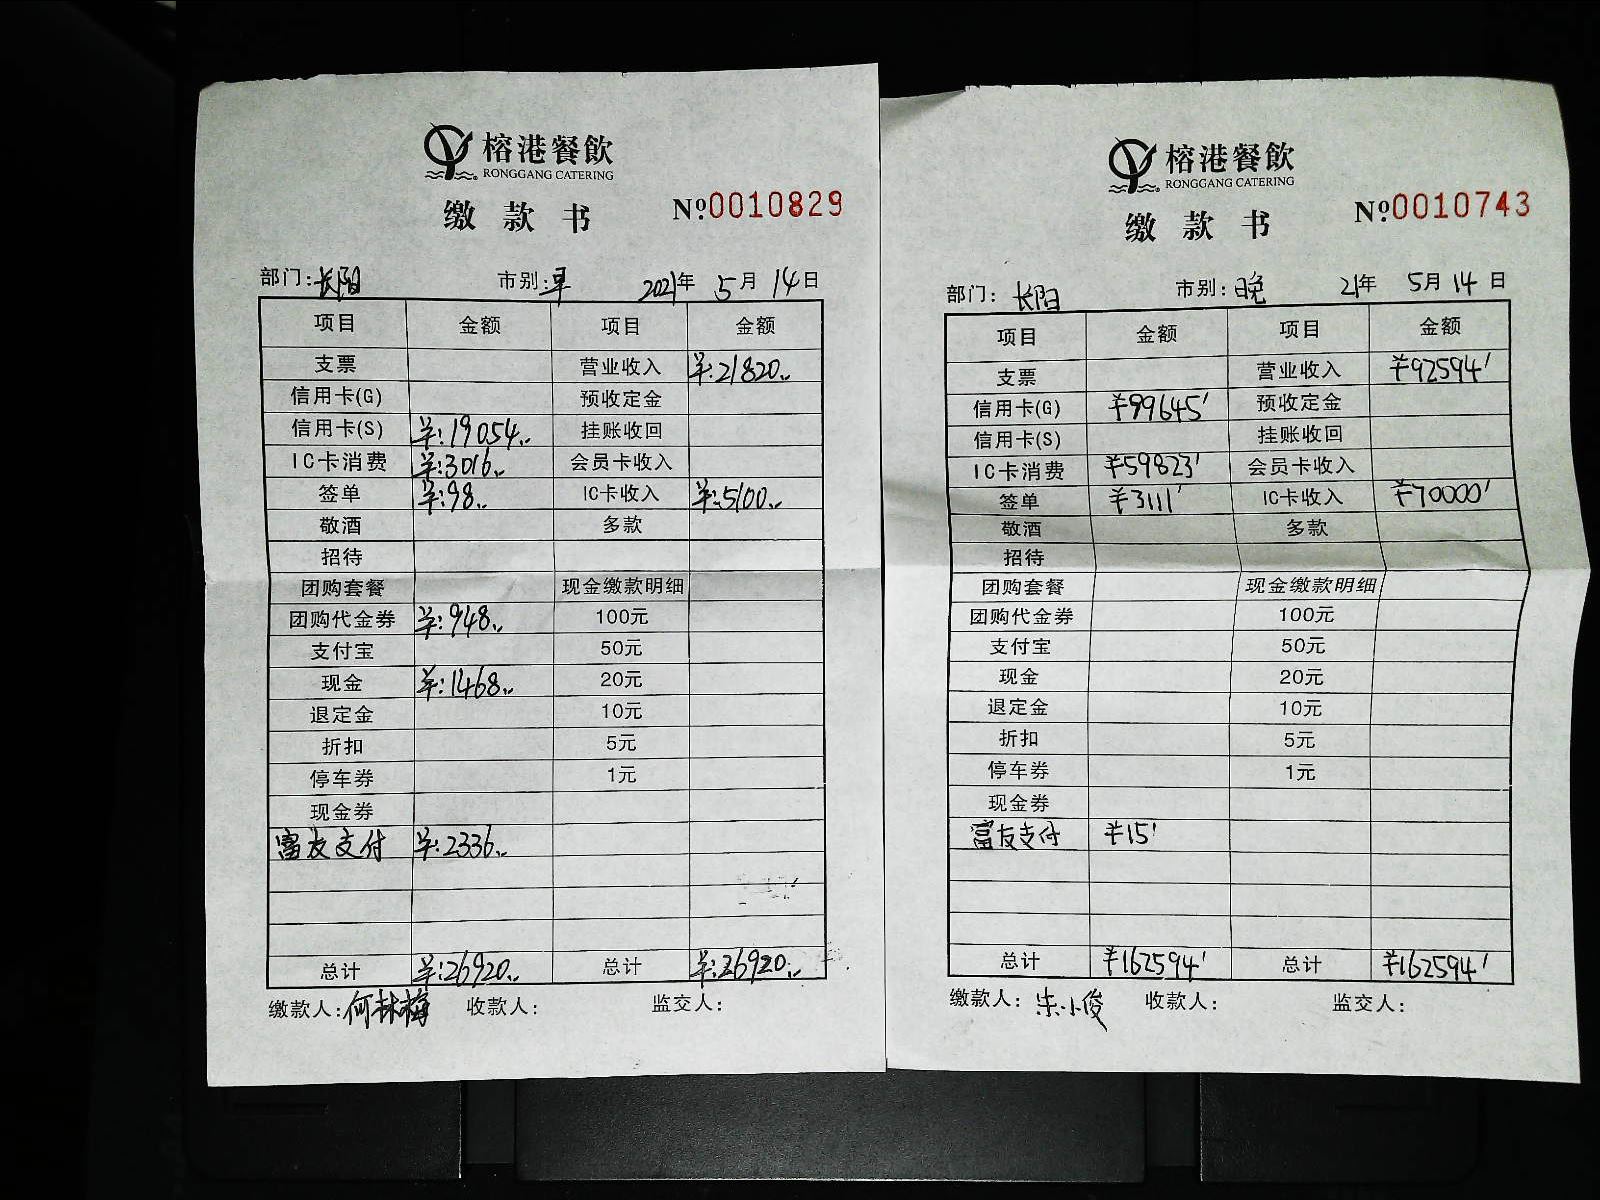 榕港餐飲
RONGGANG CATERING
缴款书
№0010829
部门:长阳 市别:早 2021年 5月 14日
项目 金额 项目 金额
支票 营业收入 ¥:21820..
信用卡(G) 预收定金
信用卡(S) ¥:19054.. 挂账收回
IC卡消费 ¥:3016.. 会员卡收入
签单 ¥:98.. IC卡收入 ¥:5100..
敬酒 多款
招待
团购套餐 现金缴款明细
团购代金券 ¥:948.. 100元
支付宝 50元
现金 ¥:1468.. 20元
退定金 10元
折扣 5元
停车券 1元
现金券
富友支付 ¥:2336..
总计 ¥:26920.. 总计 ¥:26920..
缴款人:何林梅 收款人: 监交人:
榕港餐飲
RONGGANG CATERING
缴款书
№0010743
部门:长阳 市别:晚 21年 5月 14日
项目 金额 项目 金额
支票 营业收入 ¥92594'
信用卡(G) ¥99645' 预收定金
信用卡(S) 挂账收回
IC卡消费 ¥59823' 会员卡收入
签单 ¥3111' IC卡收入 ¥70000'
敬酒 多款
招待
团购套餐 现金缴款明细
团购代金券 100元
支付宝 50元
现金 20元
退定金 10元
折扣 5元
停车券 1元
现金券
富友支付 ¥15'
总计 ¥162594' 总计 ¥162594'
缴款人:朱小俊 收款人: 监交人: